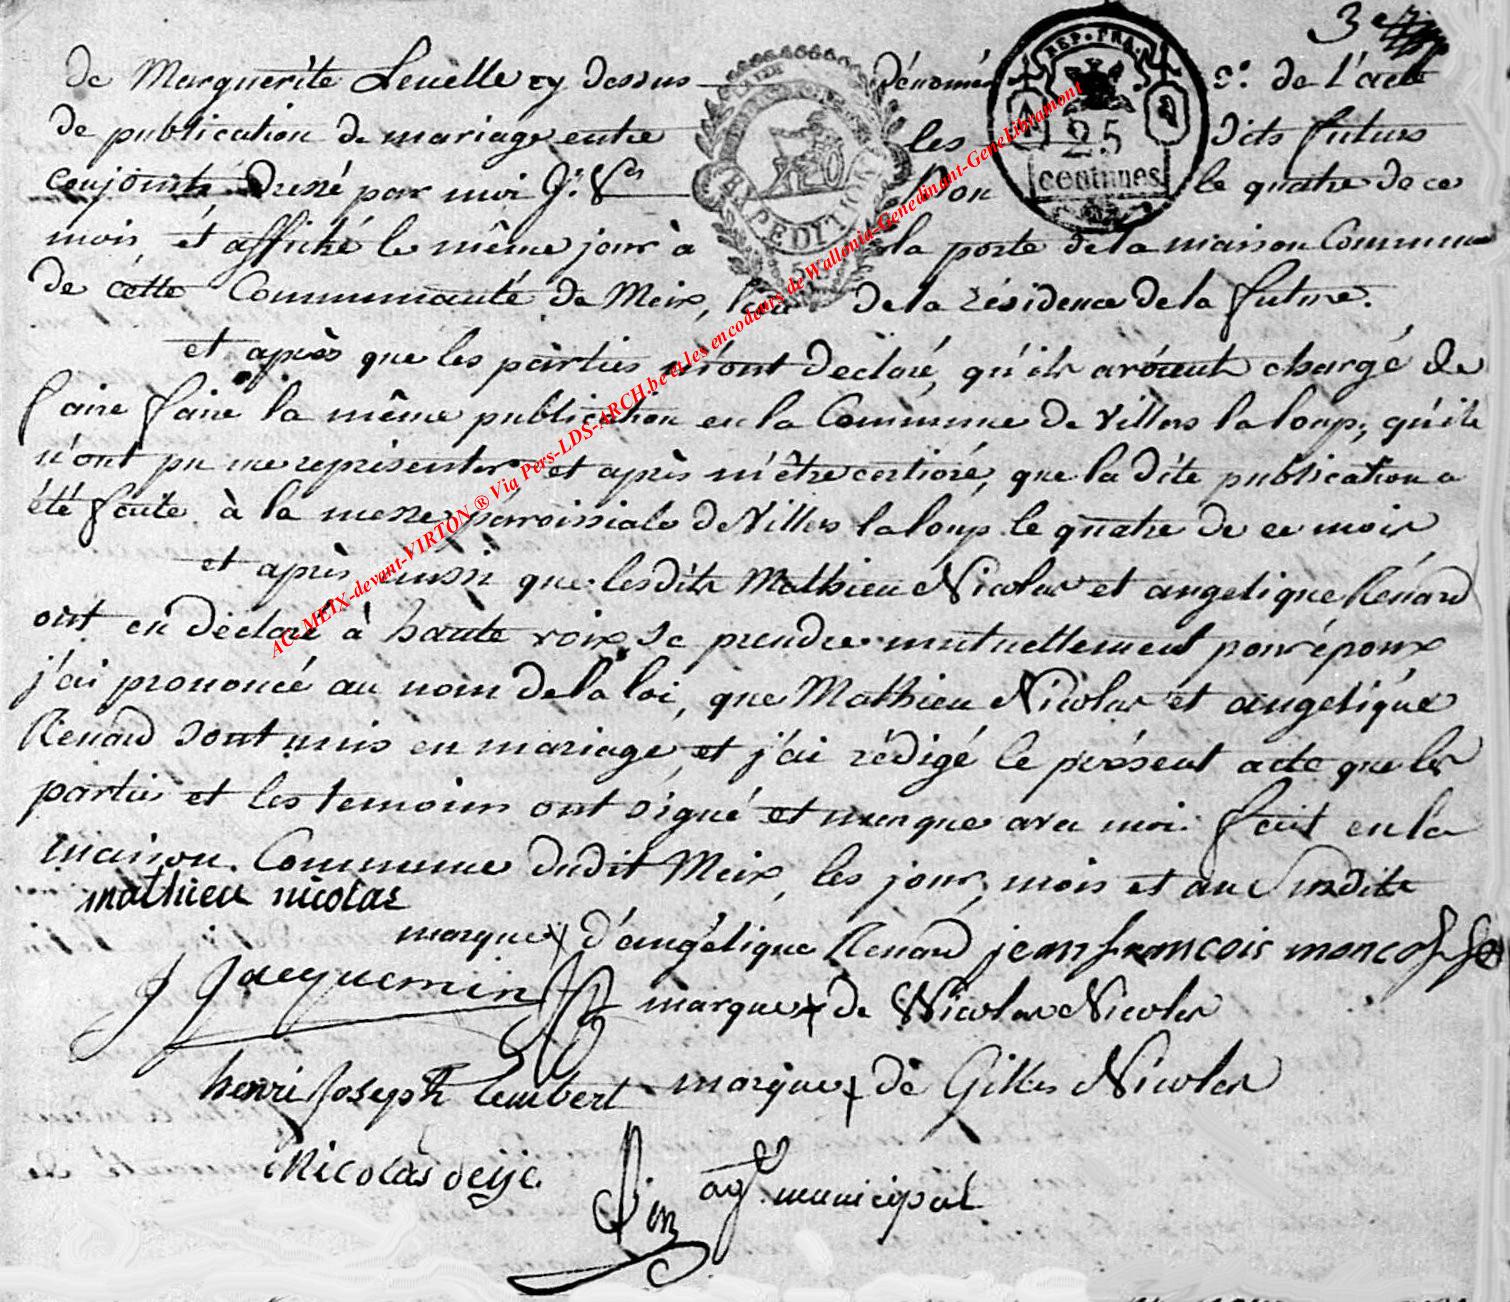 3e
de Marguerite Leuelle cy dessus dénomés 3°. de l'acte
de publication de mariage entre les dits futurs
conjoints, dressé par moi le quatre de ce
mois et affiché le même jour à la porte de la maison Commune
de cétte Communauté de Meix, lieu de la résidence de la future.
et après que les parties m'ont declaré, qu'ils avoient chargé de
faire faire la même publication en la Commune de Villers la loup, qu'ils
n'ont pu me représenter, et après m'être certioré, que la dite publication a
été faite à la messe paroissiale de Villers la loup le quatre de ce mois
et après aussi que lesdits Mathieu Nicolas et angelique Renard
ont en déclaré à haute voix se prendre mutuellement pour époux
j'ai prononcé au nom de la loi, que Mathieu Nicolas et angelique
Renard sont unis en mariage, et j'ai rédigé le présent acte que les
parties et les temoins ont signé et marque avec moi. fait en la
maison Commune dudit Meix, les jour, mois et an susdits
mathieu nicolas
marque d'angélique Renard jean francois
J Jacquemin marque de Nicolas Nicolas
henri Joseph Lambert marque de Gilles Nicolas
Nicolas
ag. municipal
REP. FRA.
25
centimes
EXPEDITION
AC-MEIX-devant-VIRTON ® Via Pers-LDS-ARCH.be et les encodeurs de Wallonia-Genedinant-GeneLibramont